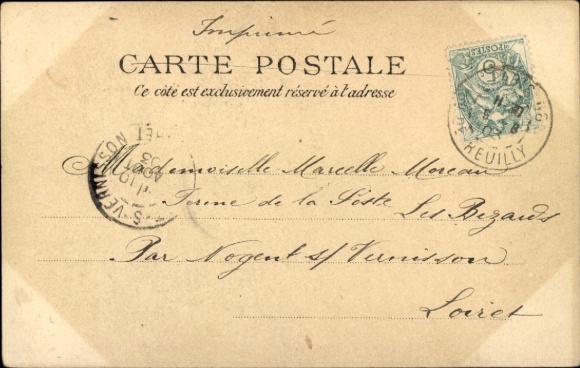 Imprimé
CARTE POSTALE
Ce côté est exclusivement réservé à l'adresse
POSTES
REUILLY
S/VERNISSON
AOUT
03
Mademoiselle Marcelle Moreau
Ferme de la Poste Les Bezards
Par Nogent s/ Vernisson
Loiret